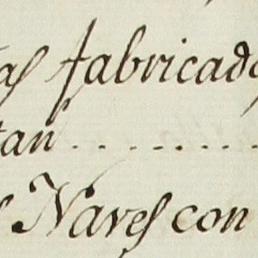 as fabricado
tan ..........
s Naves con